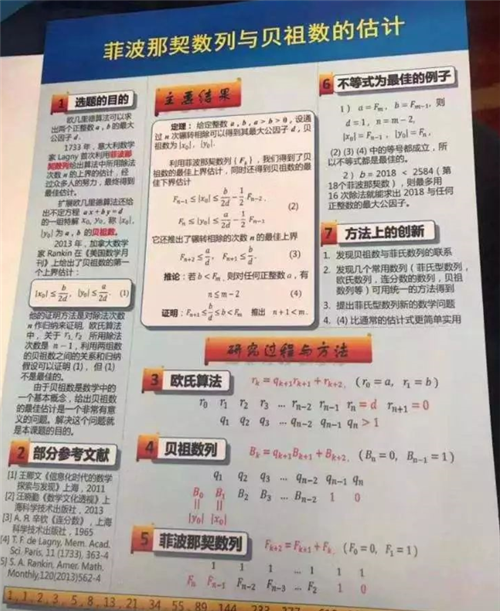 菲波那契数列与贝祖数的估计
1 选题的目的
欧几里德算法可以求
出两个正整数 a, b 的最大
公因子 d。
1733 年，意大利数学
家 Lagny 首次利用菲波那
契数列给出算法中所用除法
次数 n 的上界的估计，经
过众多人的努力，最终得到
最佳估计。
扩展欧几里德算法还给
出不定方程 ax + by = d
的一组特解 x₀, y₀，称 |x₀|,
|y₀| 为 a, b 的贝祖数。
2013 年，加拿大数学
家 Rankin 在《美国数学月
刊》上给出了贝祖数的第一
个上界估计：
|x₀| ≤ b/2d, |y₀| ≤ a/2d (1)
他的证明方法是对除法次数
n 作归纳来证明。欧氏算法
中，关于 r₁, r₂ 所用除法
次数是 n − 1，利用两组数
的贝祖数之间的关系和归纳
假设可以证明 (1)，但 (1)
不是最佳的。
由于贝祖数是数学中的
一个基本概念，给出贝祖数
的最佳估计是一个非常有意
义的问题。解决这个问题就
是本课题的目的。
2 部分参考文献
[1] 王卿文《信息化时代的数学
探索与发现》上海，2011
[2] 汪晓勤《数学文化透视》上
海科学技术出版，2013
[3] A. Я. 辛钦《连分数》，上海
科学技术出版社，1965
[4] T. F. de Lagny, Mem. Acad.
Sci. Paris, 11 (1733), 363-4
[5] S. A. Rankin, Amer. Math.
Monthly,120(2013)562-4
主要结果
定理：给定整数 a, b, a > b > 0，设通
过 n 次辗转相除可以得到其最大公因子 d，贝
祖数为 |x₀|, |y₀|。
利用菲波那契数列 {Fₖ}，我们得到了贝
祖数的最佳上界估计，同时还得到贝祖数的最
佳下界估计
Fₙ₋₁ ≤ |x₀| ≤ b/2d − 1/2 Fₙ₋₂,
(2)
Fₙ ≤ |y₀| ≤ a/2d − 1/2 Fₙ₋₁.
它还推出了辗转相除的次数 n 的最佳上界
Fₙ₊₂ ≤ a/d, Fₙ₊₁ ≤ b/d. (3)
推论：若 b < Fₘ，则对任何正整数 a，有
n ≤ m − 2 (4)
证明：Fₙ₊₁ ≤ b/d ≤ b < Fₘ 推出 n + 1 < m.
6 不等式为最佳的例子
1) a = Fₘ, b = Fₘ₋₁, 则
d = 1, n = m − 2,
|x₀| = Fₙ₋₁, |y₀| = Fₙ.
(2) (3) (4) 中的等号都成立，所
以不等式都是最佳的。
2) b = 2018 < 2584 (第
18个菲波那契数)，则最多用
16 次除法就能求出 2018 与任何
正整数的最大公因子。
7 方法上的创新
1. 发现贝祖数与菲氏数列的联系
2. 发现几个常用数列（菲氏型数列，
欧氏数列，连分数的数列，贝祖
数列等）可用统一的方法得到
3. 提出菲氏型数列新的数学问题
4. (4) 比通常的估计式更简单实用
研究过程与方法
3 欧氏算法 rₖ = qₖ₊₁rₖ₊₁ + rₖ₊₂, (r₀ = a, r₁ = b)
r₀ r₁ r₂ r₃ … rₙ₋₂ rₙ₋₁ rₙ = d rₙ₊₁ = 0
q₁ q₂ q₃ … qₙ₋₂ qₙ₋₁ qₙ > 1
4 贝祖数列 Bₖ = qₖ₊₁Bₖ₊₁ + Bₖ₊₂, (Bₙ = 0, Bₙ₋₁ = 1)
q₁ q₂ q₃ … qₙ₋₂ qₙ₋₁ qₙ
B₀ B₁ B₂ B₃ … Bₙ₋₂ 1 0
|| ||
|y₀| |x₀|
5 菲波那契数列 Fₖ₊₂ = Fₖ₊₁ + Fₖ, (F₀ = 0, F₁ = 1)
1 1 1 … 1 1 1
Fₙ Fₙ₋₁ Fₙ₋₂ Fₙ₋₃ … F₂ 1 0
1, 1, 2, 3, 5, 8, 13, 21, 34, 55, 89, 144, 233, 377